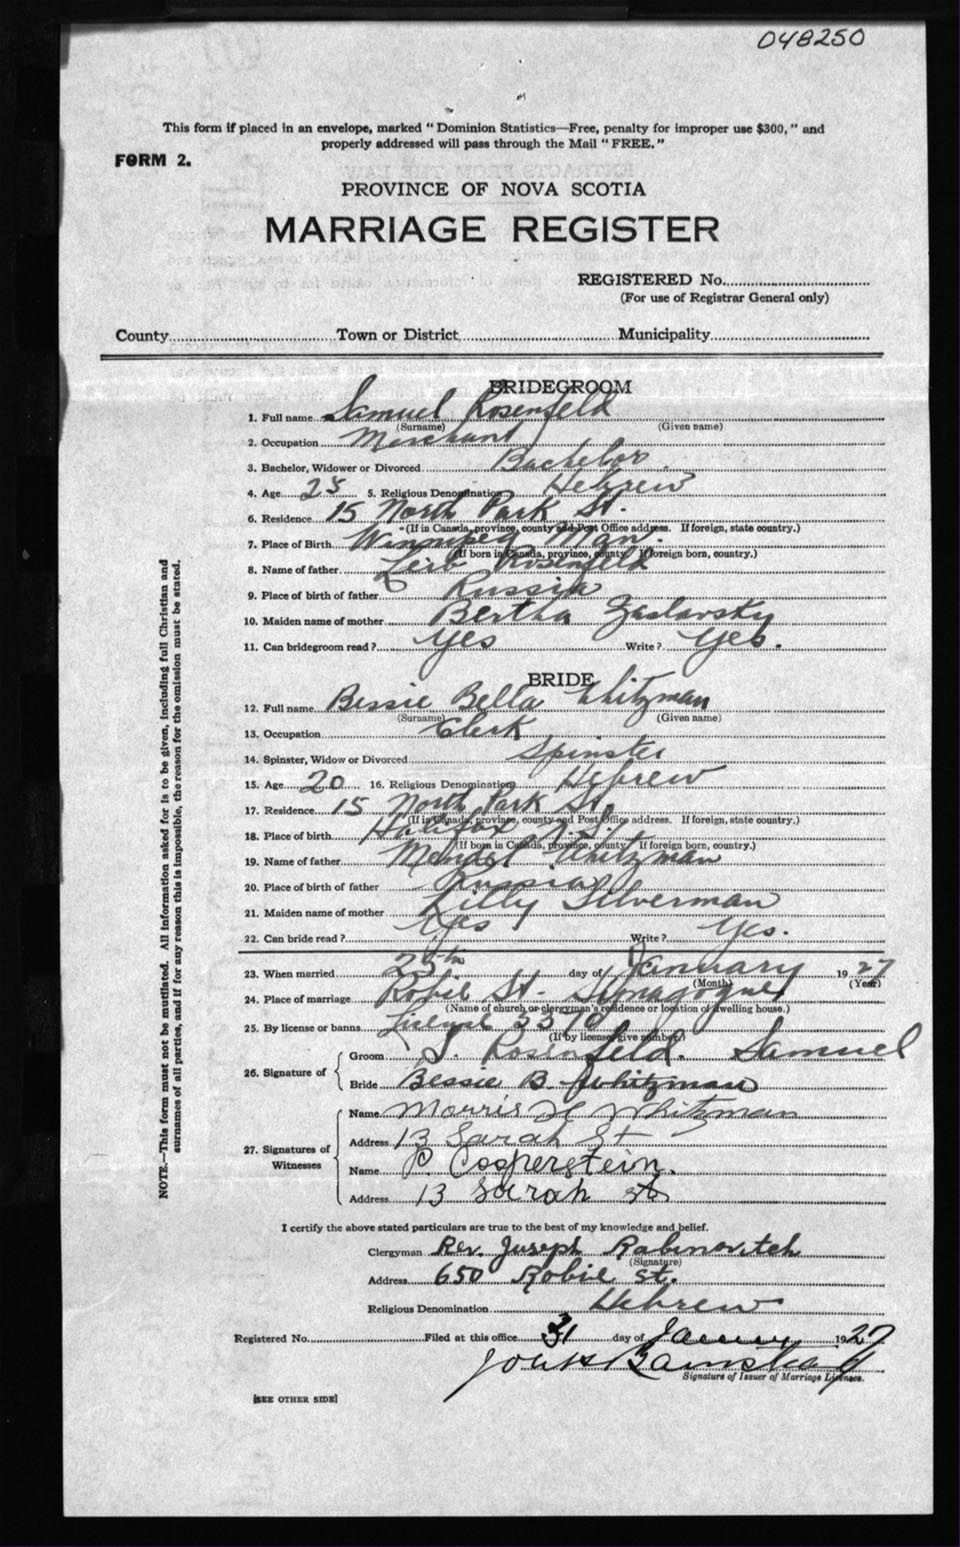 048250
This form if placed in an envelope, marked "Dominion Statistics—Free, penalty for improper use $300," and
properly addressed will pass through the Mail "FREE."
FORM 2.
PROVINCE OF NOVA SCOTIA
MARRIAGE REGISTER
REGISTERED No.
(For use of Registrar General only)
County Town or District Municipality
BRIDEGROOM
1. Full name Samuel Rosenfeld
(Surname) (Given name)
2. Occupation Merchant
3. Bachelor, Widower or Divorced Bachelor
4. Age 25 5. Religious Denomination Hebrew
6. Residence 15 North Park St.
(If in Canada, province, county and Post Office address. If foreign, state country.)
7. Place of Birth Winnipeg Man.
(If born in Canada, province, county. If foreign born, country.)
8. Name of father Leib Rosenfeld
9. Place of birth of father Russia
10. Maiden name of mother Bertha Zaslavsky
11. Can bridegroom read? Yes Write? Yes.
BRIDE
12. Full name Bessie Bella Whitzman
(Surname) (Given name)
13. Occupation Clerk
14. Spinster, Widow or Divorced Spinster
15. Age 20 16. Religious Denomination Hebrew
17. Residence 15 North Park St.
(If in Canada, province, county and Post Office address. If foreign, state country.)
18. Place of birth Halifax N.S.
(If born in Canada, province, county. If foreign born, country.)
19. Name of father Mendel Whitzman
20. Place of birth of father Russia
21. Maiden name of mother Lilly Silverman
22. Can bride read? Yes Write? Yes.
23. When married 25th day of January 1927
(Month) (Year)
24. Place of marriage Robie St. Synagogue
(Name of church or clergyman's residence or location of dwelling house.)
25. By license or banns License
(If by license, give number.)
26. Signature of
Groom S. Rosenfeld. Samuel
Bride Bessie B. Whitzman
27. Signatures of Witnesses
Name Morris H Whitzman
Address 13 Sarah St
Name P Cooperstein.
Address 13 Sarah St
I certify the above stated particulars are true to the best of my knowledge and belief.
Clergyman Rev. Joseph Rabinovitch
(Signature)
Address 650 Robie St.
Religious Denomination Hebrew
Registered No. Filed at this office 31 day of January 1927
Signature of Issuer of Marriage Licenses.
[SEE OTHER SIDE]
NOTE.—This form must not be mutilated. All information asked for is to be given, including full Christian and
surnames of all parties, and if for any reason this is impossible, the reason for the omission must be stated.